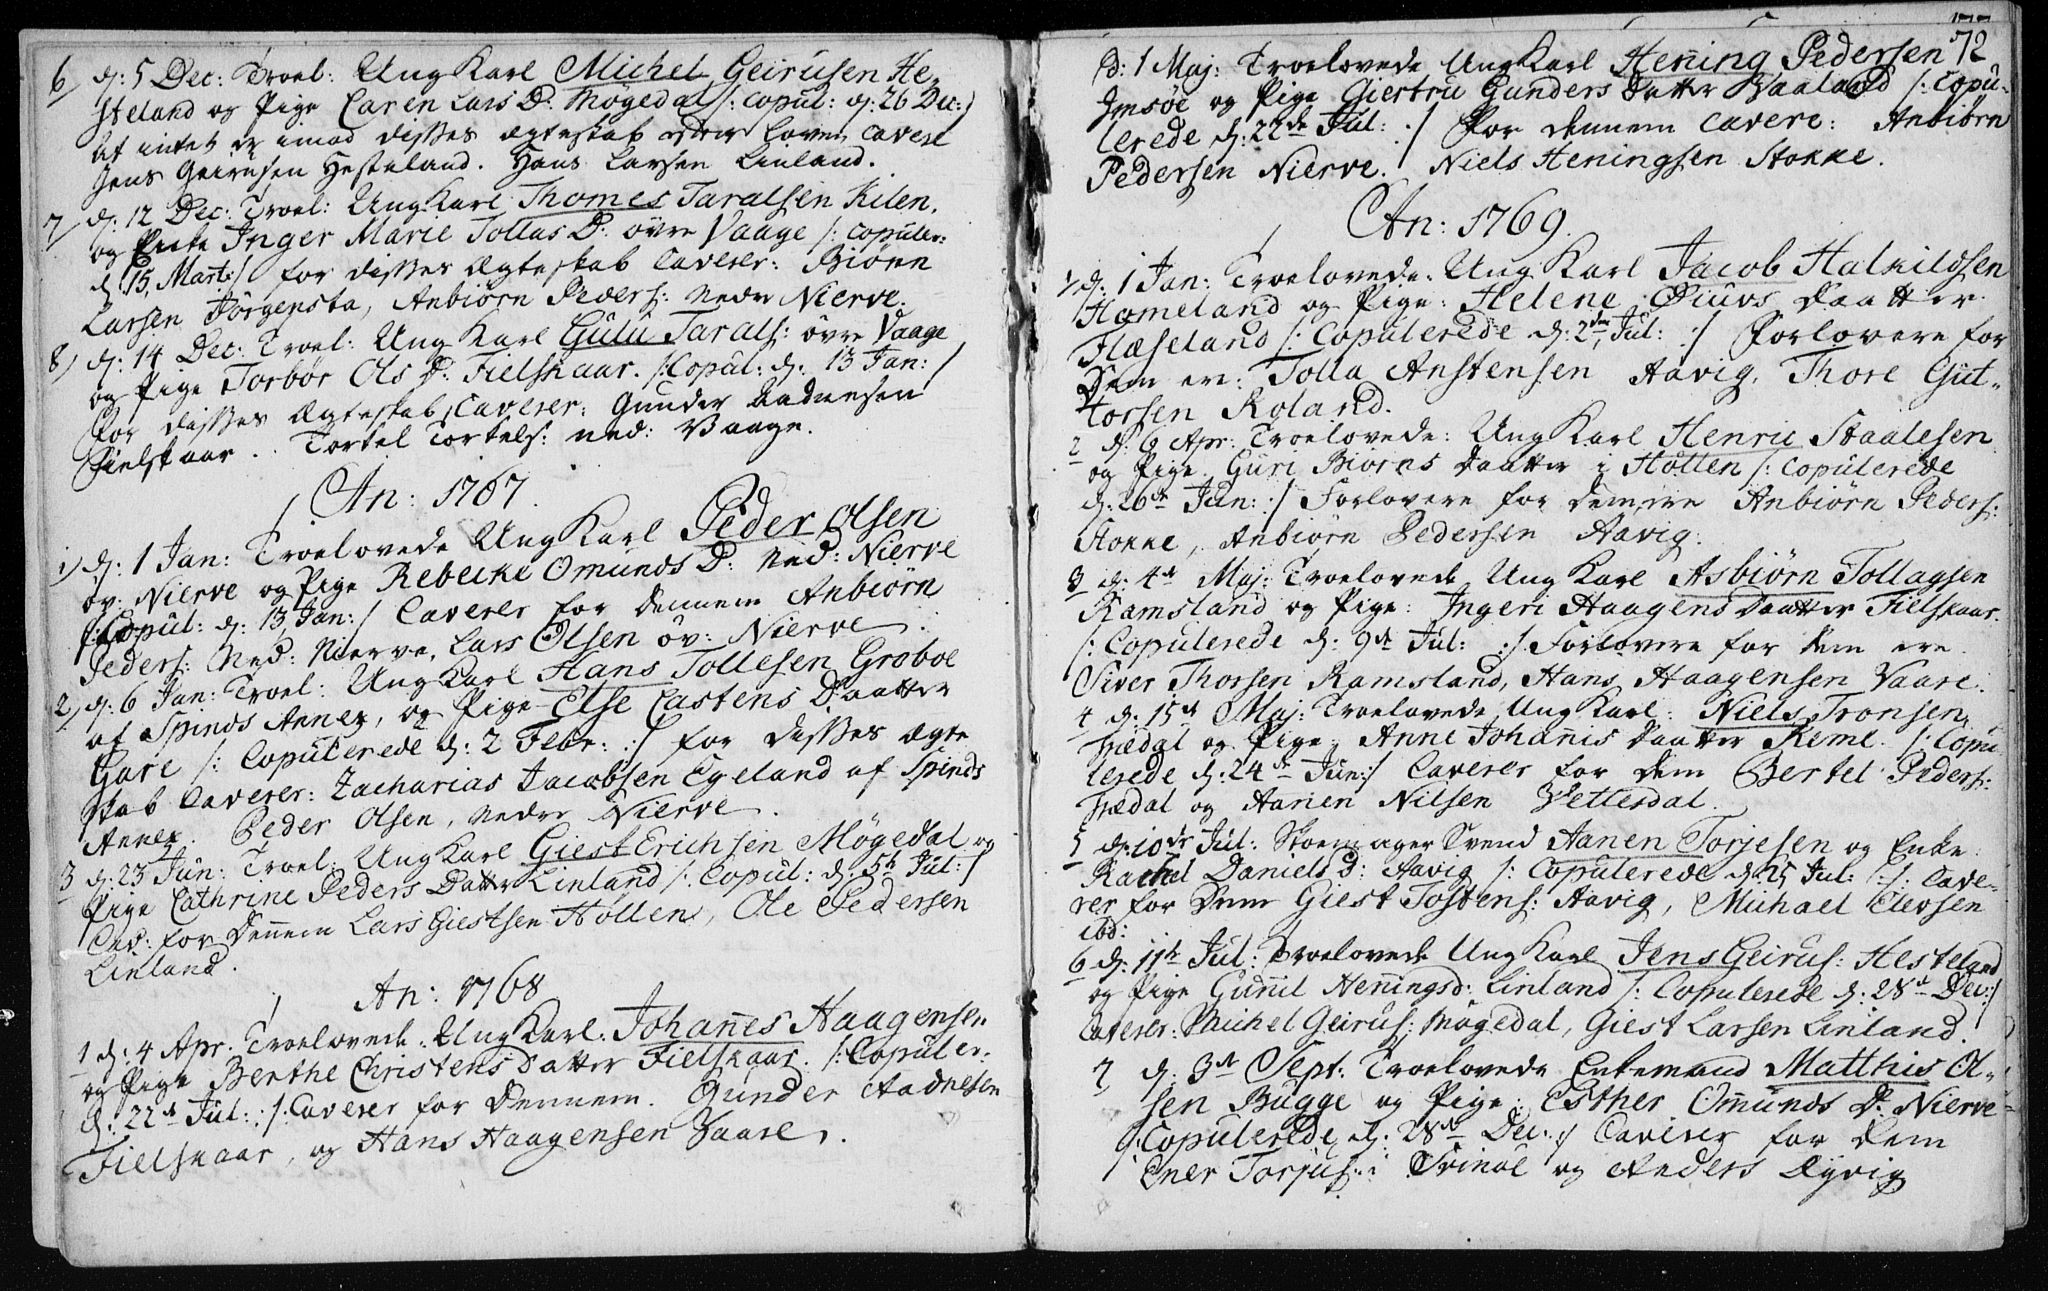 6/ d: 5 Dec: Troel: Ung Karl Michel Geirusen He-
steland og Pige Caren Lars D: Mögedal /: copul: d: 26 Dec:/
At intet er imod disses Ægteskab efter Loven cavere
Jens Geirusen Hesteland. Hans Larsen Linland.
7/ d: 12 Dec: Troel: Ung Karl Thomes Taralsen Kilen,
og Enke Inger Marie Tollas D: övre Vaage /: copuler:
d 15, Mart:/ for disses Ægteskab Caverer: Biörn
Larsen Jörgensta, Anbiörn Peders: nedre Nierve.
8) d: 14 Dec: Troel: Ung Karl Gulu Tarals: övre Vaage
og Pige Torbor Ols D: Fielskaar. /: Copul: d: 13 Jan: /
for disses Ægteskab, Caverer: Gunder Aadnesen
Fielskaar. Tortel Tortels: ned: Vaage.
An: 1767.
1) d: 1 Jan: Troelovede Ung Karl Peder Olsen
öv: Nierve og Pige Rebecke Omunds D: ned: Nierve
/: Copul: d: 13 Jan: / Caverer for dennem Anbiörn
Peders: Ned: Nierve, Lars Olsen öv: Nierve.
2) d: 6 Jan: Troel: Ung Karl Hans Tollesen Groboe
af Spinds Annex, og Pige Else Castens Daatter
Gare /: Copulerede d: 2 Febr: :/ for disses Ægte
skab Caverer: Zacharias Jacobsen Egeland af Spinds
Annex. Peder Olsen, nedre Nierve.
3 d: 23 Jun: Troel: Ung Karl Giest Erichsen Mögedal og
Pige Cathrine Peders Datter Linland /: Copul: d: 5t Jul: /
Cav: for Dennem Lars Giestsen Höllen, Ole Pedersen
Linland.
An: 1768
1 d: 4 Apr: Troelovede: Ung Karl: Johannes Haagensen
og Pige Berthe Christens Datter Fielskaar. /: Copuler:
d: 22de Jul: :/ Caverer for Dennem. Gunder Aadnesen
Fielskaar, og Hans Haagensen Vaare.
72
d: 1 Maj: Troelovede Ung Karl Hening Pedersen
Imsöe og Pige Giertru Gunders Datter Vaaland /: Copu-
lerede d: 22de Jul: :/ for dennem cavere: Anbiörn
Pedersen Nierve. Niels Heningsen Stokke.
An: 1769.
1/ d: 1 Jan: Troelovede: Ung Karl Jacob Halkildsen
Homeland og Pige: Helene Siuvs Daatter
Flæseland /: Copulerede d: 2den Jul: :/ Forlovere for
Dem er: Tolla Anstensen Aavig, Thore Gut-
torsen Roland.
2 d: 6 Apr: Troelovede: Ung Karl Henric Staalesen
og Pige Guri Biorns Daatter i Hollen /: Copulerede
d: 26de Jun: :/ Forlovere for dem ere Anbiörn Peders:
Stokke, Anbiörn Pedersen Aavig.
3 d: 4de Maj: Troelovede Ung Karl Asbiörn Tollagsen
Ramsland og Pige: Ingeri Haagens Daatter Fielskaar.
/: Copulerede d: 9de Jul: :/ Forlovere for dem ere
Siver Thorsen Ramsland, Hans Haagensen Vaare.
4 d: 15de Maj: Troelovede Ung Karl: Niels Tronsen
Hædal og Pige: Anne Johanis Daatter Reme. /: Copu
lerede d: 24de Jun:/ Caverer for dem Bertel Peders:
Hædal og Aanen Nilsen Vettesdal.
5 d: 10de Jul: Skoemager Svend Aanen Torjesen og Enke
Rachel Daniels D: Aavig /: Copulerede d: 25 Jul: :/: Cave-
rer for Dem Giest Tostens: Aavig, Michael Elevsen
ibd:
6 d: 11te Jul: Troelovede Ung Karl Jens Geirus: Hesteland
og Pige Gunnil Heningsd: Linland /: Copulerede d: 28de Dec:/
Caverer: Michel Geirus: Mögedal, Giest Larsen Linland.
7 d: 3de Sept: Troelovede Enkemand Matthis Ol-
sen Bugge og Pige: Esther Omunds D: Nierve
/: Copulerede d: 28de Dec: :/ Caverer for dem
Ener Torjus: i Svinöe og Anders Dyvig